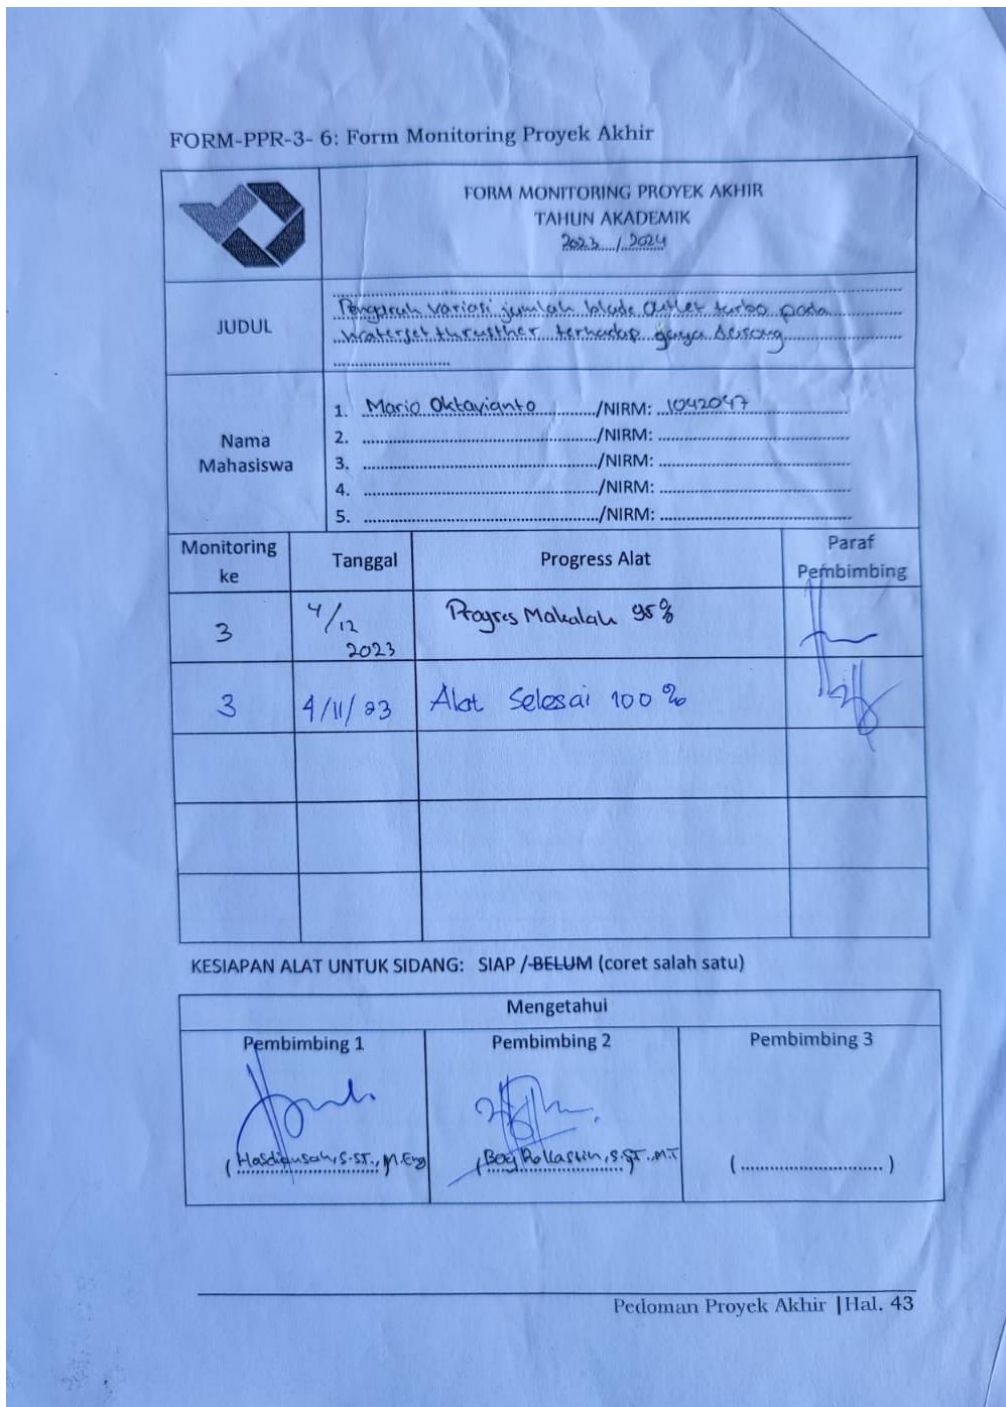 FORM-PPR-3- 6: Form Monitoring Proyek Akhir
FORM MONITORING PROYEK AKHIR
TAHUN AKADEMIK
2023 / 2024
JUDUL
Pengaruh variasi jumlah blade outlet turbo pada
waterjet thrusther terhadap gaya dorong
Nama
Mahasiswa
1. Mario Oktavianto /NIRM: 1042047
2. /NIRM:
3. /NIRM:
4. /NIRM:
5. /NIRM:
Monitoring ke
Tanggal
Progress Alat
Paraf Pembimbing
3 4/12 2023 Progres Makalah 95%
3 4/11/23 Alat Selesai 100%
KESIAPAN ALAT UNTUK SIDANG: SIAP / BELUM (coret salah satu)
Mengetahui
Pembimbing 1 Pembimbing 2 Pembimbing 3
(Hasdiansah, S.ST., M.Eng (Boy Rollastin, S.ST., M.T (............................)
Pedoman Proyek Akhir |Hal. 43